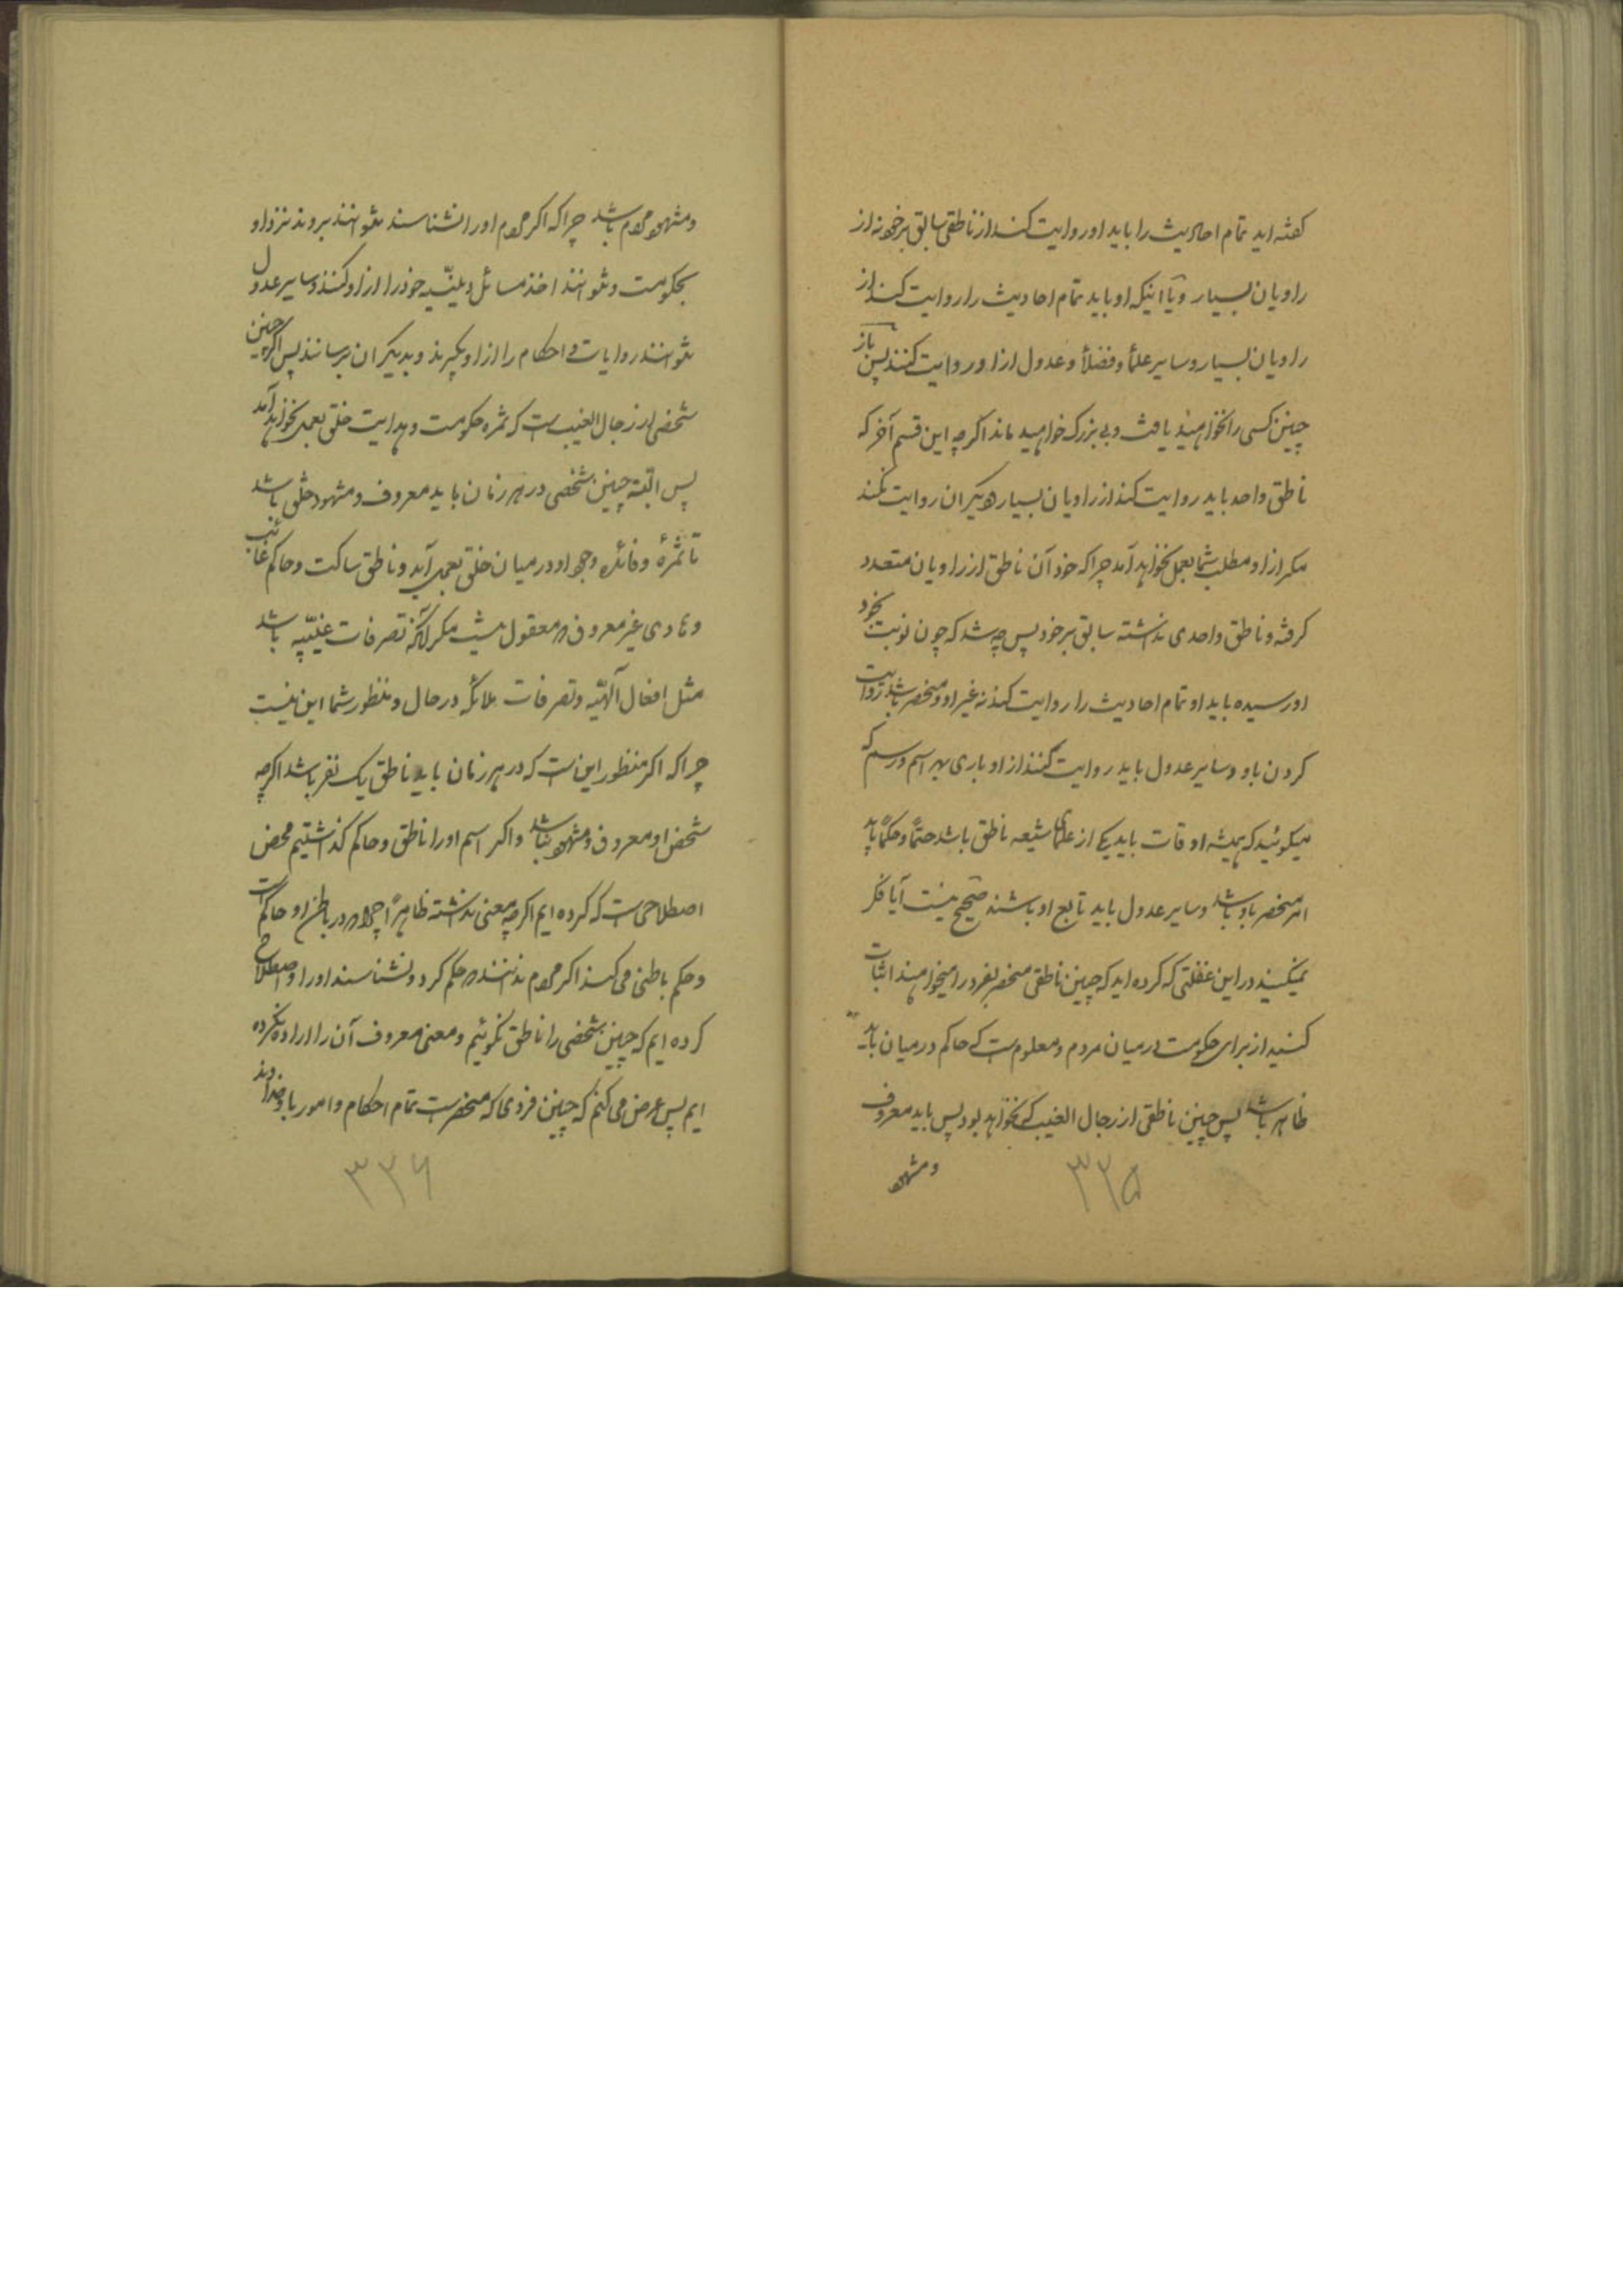 گفته اید تمام احادیث را باید او روایت کند از ناطقی سابق بر خود نه از
راویان بسیار و یا اینکه او باید تمام احادیث را روایت کند از
راویان بسیار و سایر علمأ و فضلأ و عدول از او روایت کنند پس باز
چنین کسی را نخواهید یافت و بی بزرک خواهید ماند اکرچه این قسم آخر که
ناطق واحد باید روایت کند از راویان بسیار و دیکران روایت نکنند
مکر از او مطلب شما بعمل نخواهد آمد چرا که خود آن ناطق از راویان متعدد
کرفته و ناطق واحدی نداشته سابق بر خود پس چه شد که چون نوبت بخود
او رسیده باید او تمام احادیث را روایت کند نه غیر او و منحصر باشد روایت
کردن باو و سایر عدول باید روایت کنند از او باری بهر اسم و رسم که
میکوئید که همیشه اوقات باید یکی از علمای شیعه ناطق باشد حتمًا و حکمًا باید
امر منحصر باو باشد و سایر عدول باید تابع او باشند صحیح نیست آیا فکر
نمیکنید در این غفلتی که کرده اید که چنین ناطقی منحصر بفرد را میخواهید اثبات
کنید از برای حکومت در میان مردم و معلوم است که حاکم در میان باید
ظاهر باشد پس چنین ناطقی از رجال الغیب که نخواهد بود پس باید معروف
و مشهور
۳۲۵
و مشهور مردم باشد چرا که اکر مردم او را نشناسند نتوانند بروند نزد او
بحکومت و نتوانند اخذ مسائل دینیّه خود را از او کنند و سایر عدول
نتوانند روایات و احکام را از او بکیرند و بدیکران برسانند پس اکر چنین
شخصی از رجال الغیب است که ثمره حکومت و هدایت خلق بعمل نخواهد آمد
پس البته چنین شخصی در هر زمان باید معروف و مشهود خلق باشد
تا ثمرهٔ و فائده وجود او در میان خلق بعمل آید و ناطق ساکت و حاکم غائب
و هادی غیر معروف که معقول نیست مکر آنکه تصرفات غیبیّه باشد
مثل افعال آلهیّه و تصرفات ملائکه در حال و منظور شما این نیست
چرا که اکر منظور این است که در هر زمان باید ناطق یک نفر باشد اکرچه
شخص او معروف و مشهور نباشد و اکر اسم او را ناطق و حاکم کذاشتیم محض
اصطلاحی است که کرده ایم اکرچه معنی نداشته ظاهراً چرا که در باطن او حاکم است
و حکم باطنی می کند اکر مردم ندانند که حکم کرد و نشناسند او را و اصطلاح
کرده ایم که چنین شخصی را ناطق بکوئیم و معنی معروف آن را اراده نکرده
ایم پس عرض می کنم که چنین فردی که منحصر است تمام احکام و امور باو خداوند
۳۲۶